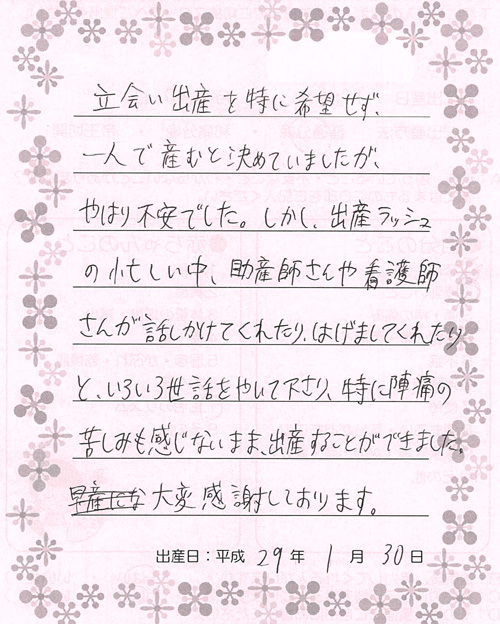 立会い出産を特に希望せず、
一人で産むと決めていましたが、
やはり不安でした。しかし、出産ラッシュ
の忙しい中、助産師さんや看護師
さんが話しかけてくれたり、はげましてくれたり
と、いろいろ世話をやいて下さり、特に陣痛の
苦しみも感じないまま、出産することができました。
大変感謝しております。
出産日：平成 29 年 1 月 30 日